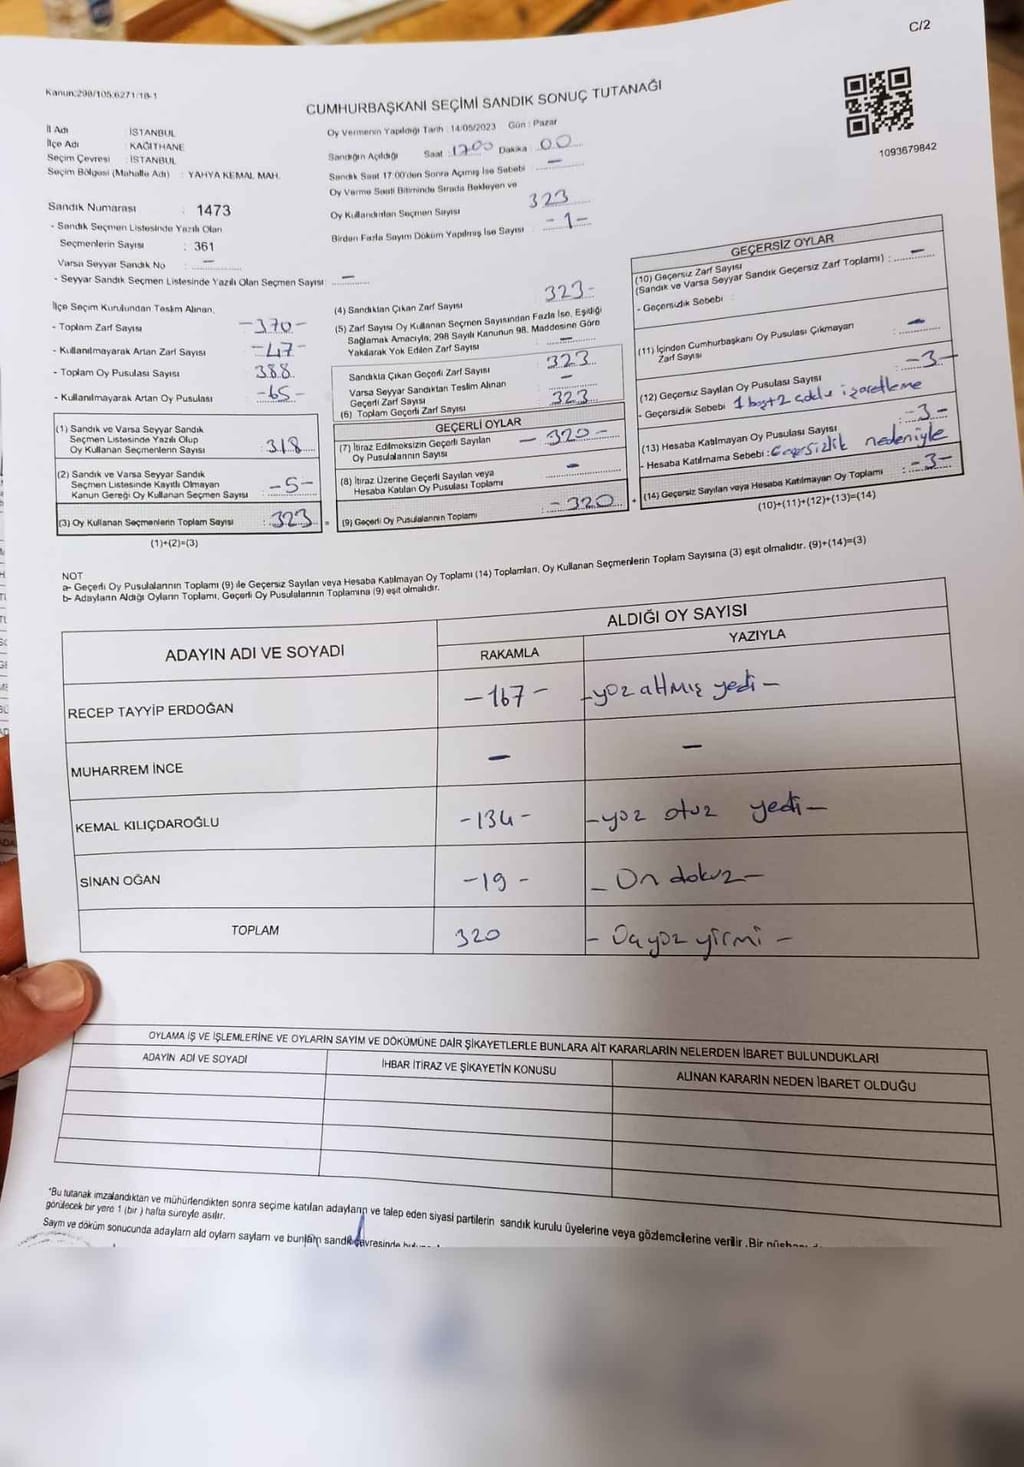 C/2
Kanun:298/105,6271/18-1
CUMHURBAŞKANI SEÇİMİ SANDIK SONUÇ TUTANAĞI
1093679842
İl Adı : İSTANBUL
İlçe Adı : KAĞITHANE
Seçim Çevresi : İSTANBUL
Seçim Bölgesi (Mahalle Adı) : YAHYA KEMAL MAH.
Sandık Numarası : 1473
- Sandık Seçmen Listesinde Yazılı Olan
Seçmenlerin Sayısı : 361
Varsa Seyyar Sandık No : —
- Seyyar Sandık Seçmen Listesinde Yazılı Olan Seçmen Sayısı : —
Oy Vermenin Yapıldığı Tarih : 14/05/2023 Gün : Pazar
Sandığın Açıldığı Saat : 17.00 Dakika : 00
Sandık Saat 17:00'den Sonra Açılmış İse Sebebi : —
Oy Verme Saati Bitiminde Sırada Bekleyen ve
Oy Kullandırılan Seçmen Sayısı : 323
Birden Fazla Sayım Döküm Yapılmış İse Sayısı : -1-
İlçe Seçim Kurulundan Teslim Alınan;
- Toplam Zarf Sayısı : -370-
- Kullanılmayarak Artan Zarf Sayısı : -47-
- Toplam Oy Pusulası Sayısı : 388
- Kullanılmayarak Artan Oy Pusulası : -65-
(1) Sandık ve Varsa Seyyar Sandık
Seçmen Listesinde Yazılı Olup
Oy Kullanan Seçmenlerin Sayısı : 318
(2) Sandık ve Varsa Seyyar Sandık
Seçmen Listesinde Kayıtlı Olmayan
Kanun Gereği Oy Kullanan Seçmen Sayısı : -5-
(3) Oy Kullanan Seçmenlerin Toplam Sayısı : 323 =
(1)+(2)=(3)
(4) Sandıktan Çıkan Zarf Sayısı : 323-
(5) Zarf Sayısı Oy Kullanan Seçmen Sayısından Fazla İse, Eşitliği
Sağlamak Amacıyla; 298 Sayılı Kanunun 98. Maddesine Göre
Yakılarak Yok Edilen Zarf Sayısı : —
Sandıkta Çıkan Geçerli Zarf Sayısı : 323
Varsa Seyyar Sandıktan Teslim Alınan
Geçerli Zarf Sayısı : —
(6) Toplam Geçerli Zarf Sayısı : 323
GEÇERLİ OYLAR
(7) İtiraz Edilmeksizin Geçerli Sayılan
Oy Pusulalarının Sayısı : -320-
(8) İtiraz Üzerine Geçerli Sayılan veya
Hesaba Katılan Oy Pusulası Toplamı : —
(9) Geçerli Oy Pusulalarının Toplamı : -320 +
GEÇERSİZ OYLAR
(10) Geçersiz Zarf Sayısı
(Sandık ve Varsa Seyyar Sandık Geçersiz Zarf Toplamı) : —
- Geçersizlik Sebebi :
(11) İçinden Cumhurbaşkanı Oy Pusulası Çıkmayan
Zarf Sayısı : —
(12) Geçersiz Sayılan Oy Pusulası Sayısı : -3-
- Geçersizlik Sebebi : 1 boş+2 işaretleme
(13) Hesaba Katılmayan Oy Pusulası Sayısı : -3-
- Hesaba Katılmama Sebebi : Geçersizlik nedeniyle
(14) Geçersiz Sayılan veya Hesaba Katılmayan Oy Toplamı : -3-
(10)+(11)+(12)+(13)=(14)
NOT
a- Geçerli Oy Pusulalarının Toplamı (9) ile Geçersiz Sayılan veya Hesaba Katılmayan Oy Toplamı (14) Toplamları, Oy Kullanan Seçmenlerin Toplam Sayısına (3) eşit olmalıdır. (9)+(14)=(3)
b- Adayların Aldığı Oyların Toplamı, Geçerli Oy Pusulalarının Toplamına (9) eşit olmalıdır.
ADAYIN ADI VE SOYADI
ALDIĞI OY SAYISI
RAKAMLA YAZIYLA
RECEP TAYYİP ERDOĞAN -167- -yüz altmış yedi-
MUHARREM İNCE — —
KEMAL KILIÇDAROĞLU -134- -yüz otuz yedi-
SİNAN OĞAN -19- -On dokuz-
TOPLAM 320 -Üçyüz yirmi-
OYLAMA İŞ VE İŞLEMLERİNE VE OYLARIN SAYIM VE DÖKÜMÜNE DAİR ŞİKAYETLERLE BUNLARA AİT KARARLARIN NELERDEN İBARET BULUNDUKLARI
ADAYIN ADI VE SOYADI
İHBAR İTİRAZ VE ŞİKAYETİN KONUSU
ALINAN KARARIN NEDEN İBARET OLDUĞU
*Bu tutanak imzalandıktan ve mühürlendikten sonra seçime katılan adayların ve talep eden siyasi partilerin sandık kurulu üyelerine veya gözlemcilerine verilir. Bir
görülecek bir yere 1 (bir) hafta süreyle asılır.
Sayım ve döküm sonucunda adayların